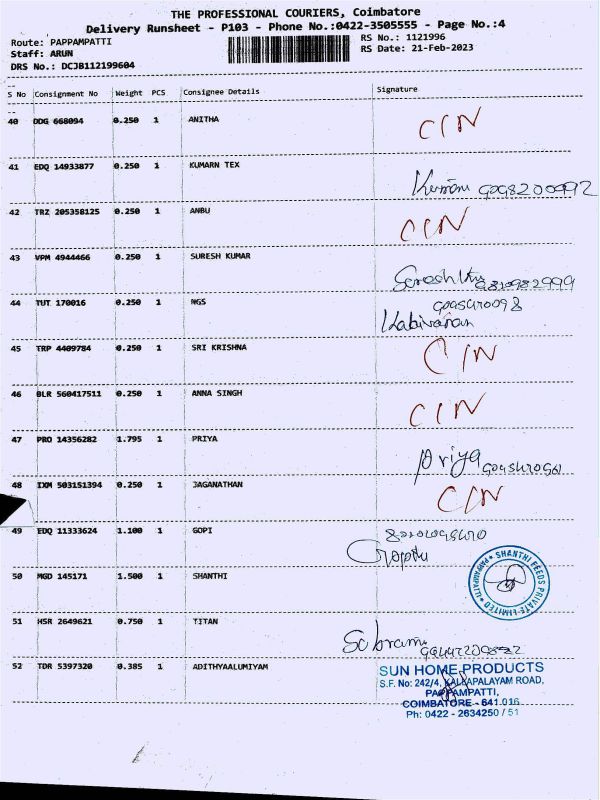 THE PROFESSIONAL COURIERS, Coimbatore
Delivery Runsheet - P103 - Phone No.:0422-3505555 - Page No.:4
Route: PAPPAMPATTI RS No.: 1121996
Staff: ARUN RS Date: 21-Feb-2023
DRS No.: DCJB112199604
S No Consignment No Weight PCS Consignee Details Signature
40 DDG 668094 0.250 1 ANITHA CIN
41 EDQ 14933877 0.250 1 KUMARN TEX
42 TRZ 205358125 0.250 1 ANBU CIN
43 VPM 4944466 0.250 1 SURESH KUMAR
44 TUT 170016 0.250 1 NGS
45 TRP 4409784 0.250 1 SRI KRISHNA CIN
46 BLR 560417511 0.250 1 ANNA SINGH CIN
47 PRO 14356282 1.795 1 PRIYA Priya
48 IXM 503151394 0.250 1 JAGANATHAN CIN
49 EDQ 11333624 1.100 1 GOPI
50 MGD 145171 1.500 1 SHANTHI SHANTHI FEEDS PRIVATE LIMITED PAPPAMPATTI
51 HSR 2649621 0.750 1 TITAN
52 TDR 5397320 0.385 1 ADITHYAALUMIYAM SUN HOME PRODUCTS
S.F. No: 242/4, KALLAPALAYAM ROAD,
PAPPAMPATTI,
COIMBATORE - 641 016
Ph: 0422 - 2634250 / 51